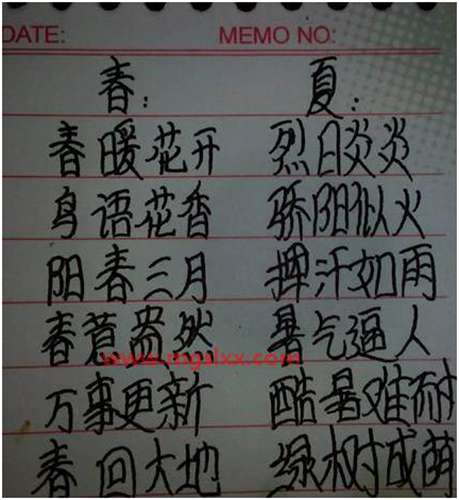 DATE: MEMO NO:
春: 夏:
春暖花开 烈日炎炎
鸟语花香 骄阳似火
阳春三月 挥汗如雨
春意盎然 暑气逼人
www.mgslxx.com
万事更新 酷暑难耐
春回大地 绿树成荫